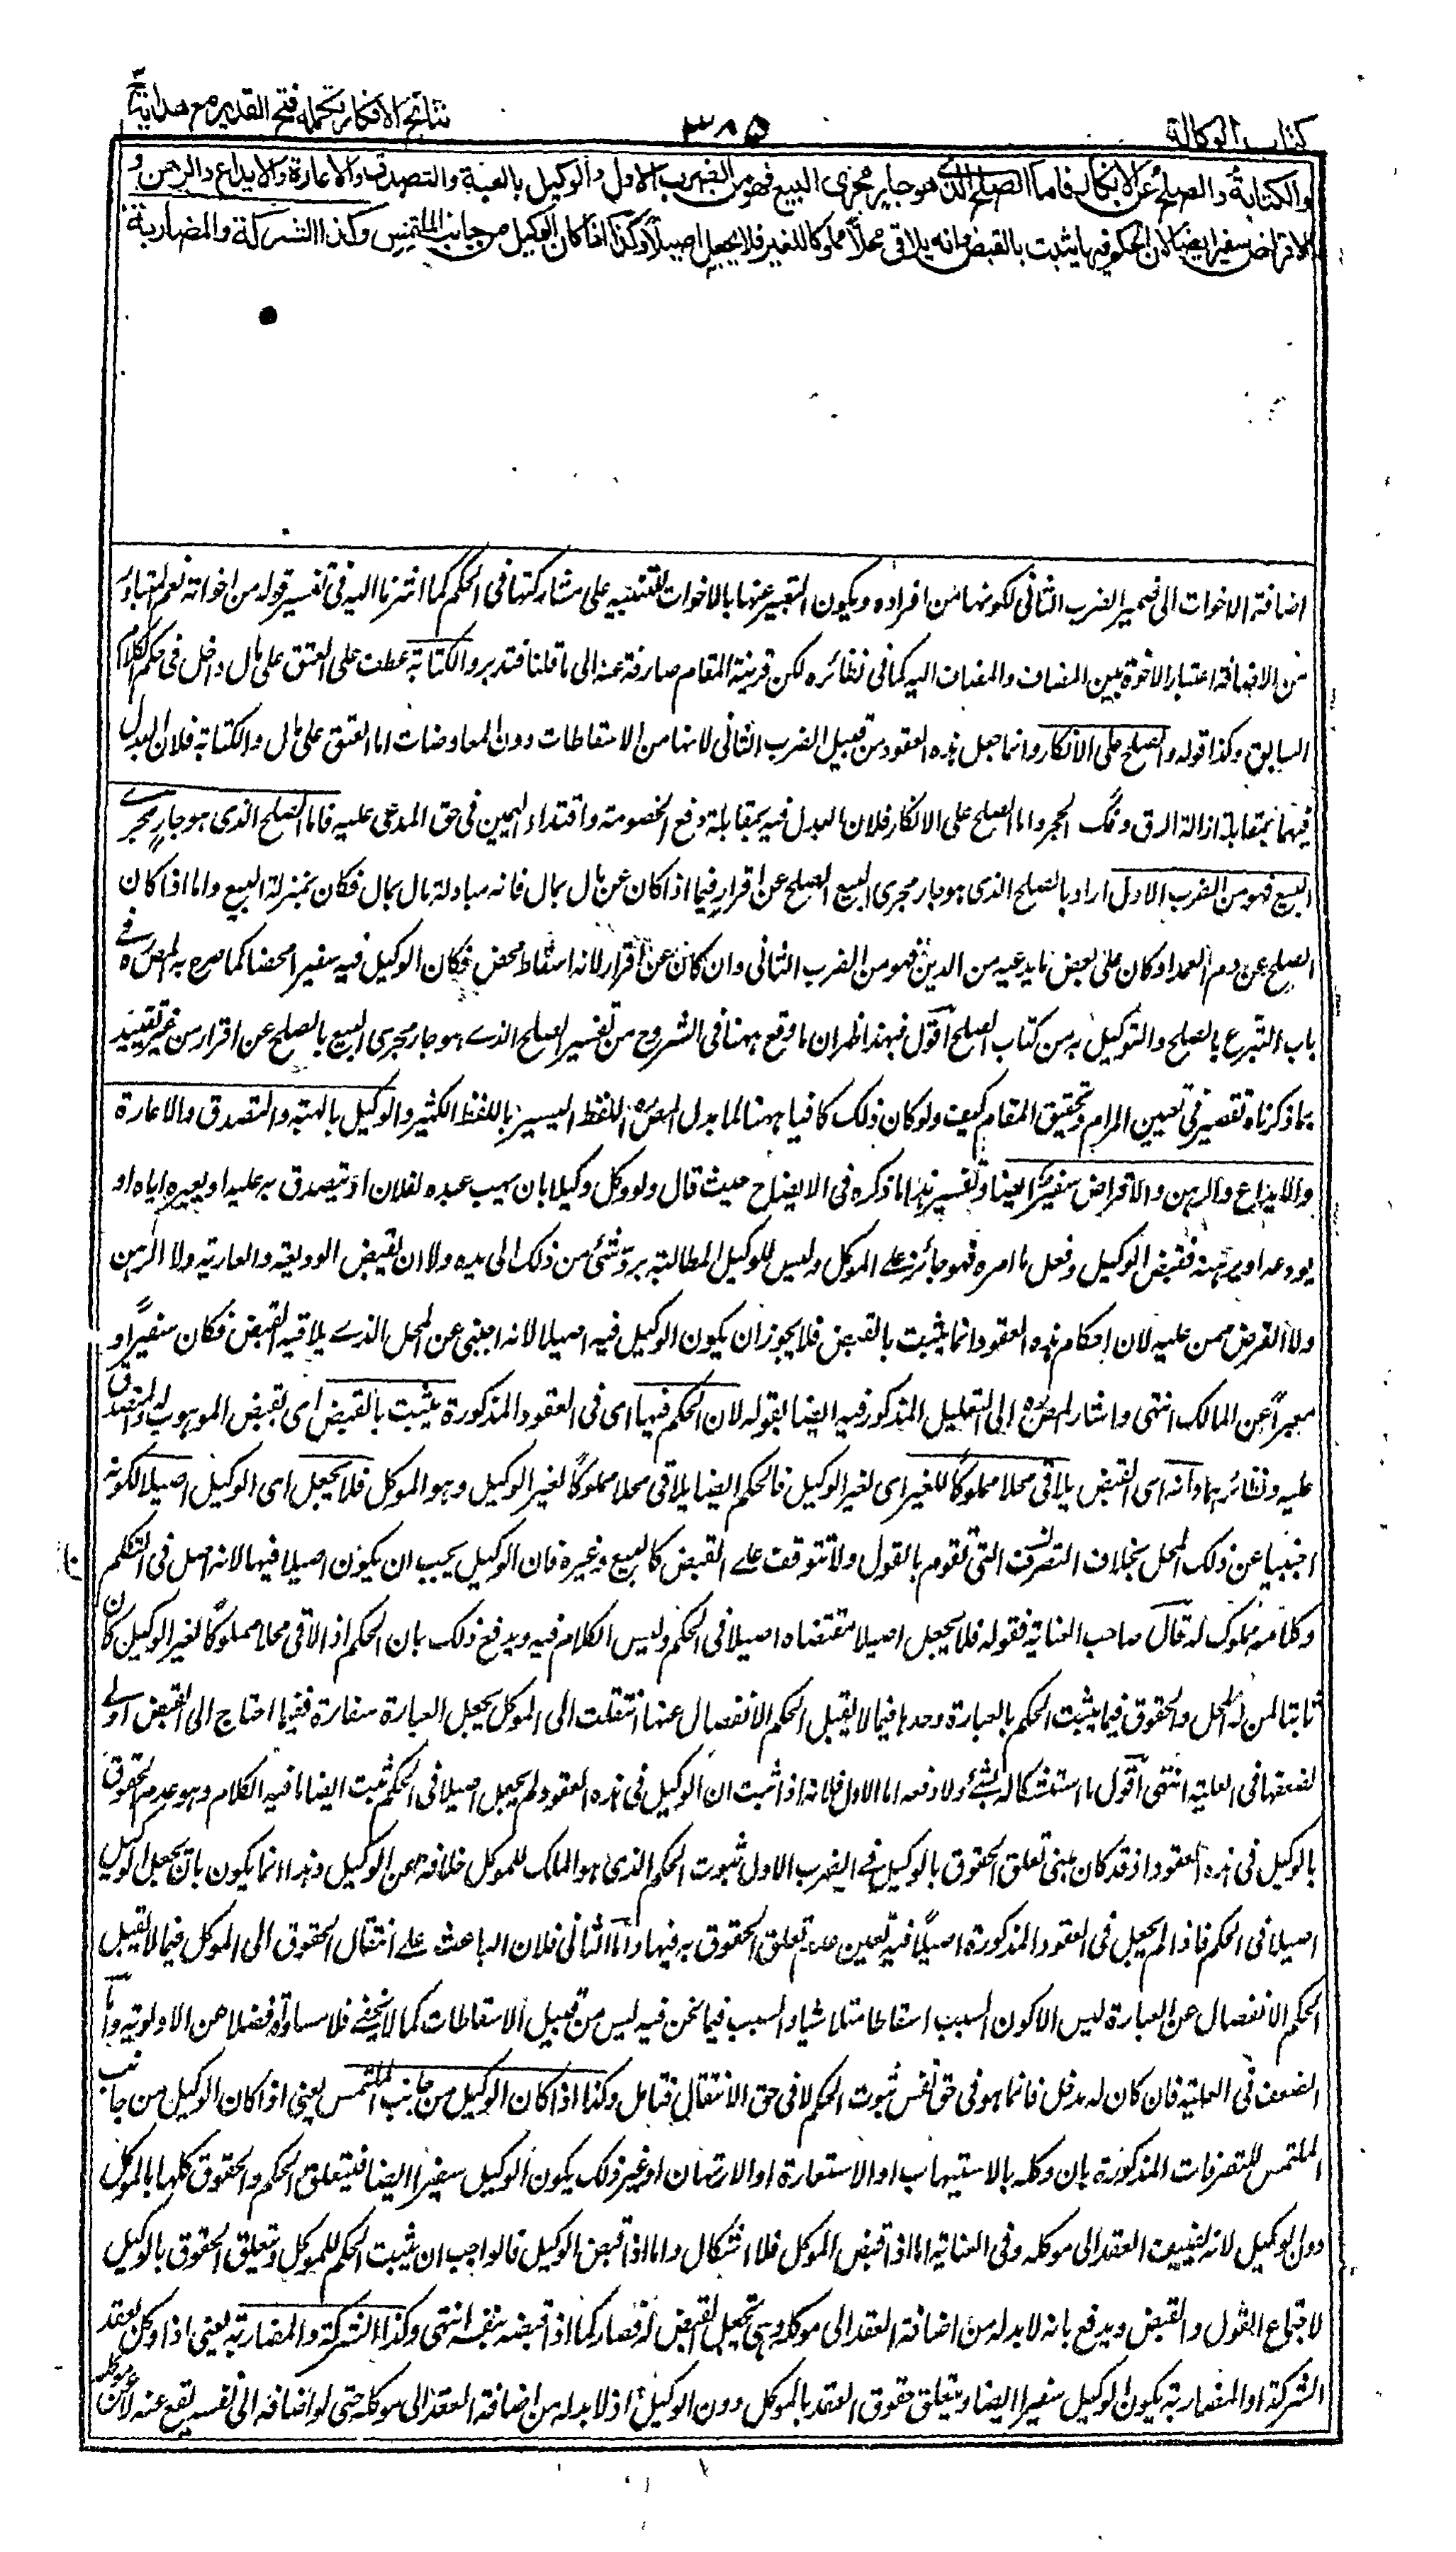 كتاب الوكالة
٣٨٥
نتائج الافكار تكمله فتح القدير مع هداية ج ٣
والكتابة والصلح عن الانكار فاما الصلح الذى هو جار مجرى البيع فهو من الضرب الاول والوكيل بالهبة والتصدق والاعارة والايداع والرهن و
الاقراض سفير ايضا لان الحكم فيها يثبت بالقبض وانه يلاقى محلا مملوكا للغير فلا يجعل اصيلا وكذا اذا كان الوكيل من جانب الملتمس وكذا الشركة والمضاربة
اضافة الاخوات الى ضمير الضرب الثانى لكونها من افراده ويكون التعبير عنها بالاخوات للتنبيه على مشاركتها فى الحكم كما اشرنا اليه فى تفسير قوله من اخواته نعم المتبادر
من الاضافة اعتبار الاخوة بين المضاف والمضاف اليه كما فى نظائره لكن قرينة المقام صارفة عنه الى ما قلنا فتدبر والكتابة عطف على العتق على مال داخل فى حكم الكلام
السابق وكذا قوله والصلح على الانكار وانما جعل هذه العقود من قبيل الضرب الثانى لانها من الاسقاطات دون المعاوضات اما العتق على مال والكتابة فلان البدل
فيهما بمقابلة ازالة الرق وفك الحجر واما الصلح على الانكار فلان البدل فيه بمقابلة دفع الخصومة وافتداء اليمين فى حق المدعى عليه فاما الصلح الذى هو جار مجرى
البيع فهو من الضرب الاول اراد بالصلح الذى هو جار مجرى البيع الصلح عن اقرار فيما اذا كان عن مال بمال فانه مبادلة مال بمال فكان بمنزلة البيع واما اذا كان
الصلح عن دم العمد او كان على بعض ما يدعيه من الدين فهو من الضرب الثانى وان كان عن اقرار لانه اسقاط محض فكان الوكيل فيه سفيرا محضا كما صرح به المصره فے
باب التبرع بالصلح والتوكيل به من كتاب الصلح اقول فبهذا ظهر ان ما وقع ههنا فى الشروح من تفسير الصلح الذے هو جار مجرى البيع بالصلح عن اقرار من غير تقييد
بما ذكرناه تقصير فى تعيين المرام وتحقيق المقام كيف ولو كان ذلك كافيا ههنا لما بدل المصره اللفظ اليسير باللفظ الكثير والوكيل بالهبة والتصدق والاعارة
والايداع والرهن والاقراض سفير ايضا وتفسير هذا ما ذكره فى الايضاح حيث قال ولو وكل وكيلا بان يهب عبده لفلان او يتصدق به عليه او يعيره اياه او
يودعه او يرهنه فقبض الوكيل وفعل ما امره فهو جائز علے الموكل وليس للوكيل المطالبة برد شئ من ذلك الى يده ولا ان يقبض الوديعة والعارية ولا الرهن
ولا القرض ممن عليه لان احكام هذه العقود انما يثبت بالقبض فلا يجوز ان يكون الوكيل فيه اصيلا لانه اجنبى عن المحل الذے يلاقيه القبض فكان سفيرا و
معبرا عن المالك انتهى واشار المصره الى التعليل المذكور فيه ايضا بقوله لان الحكم فيها اى فى العقود المذكورة يثبت بالقبض اى بقبض الموهوب له والمتصدق
عليه ونظائرهما وانه اى القبض يلاقى محلا مملوكا للغير اى لغير الوكيل فالحكم ايضا يلاقى محلا مملوكا لغير الوكيل وهو الموكل فلا يجعل اى الوكيل اصيلا لكونه
اجنبيا عن ذلك المحل بخلاف التصرفات التى تقوم بالقول ولا تتوقف علے القبض كالبيع وغيره فان الوكيل يجب ان يكون اصيلا فيها لانه اصل فى التكلم
وكلامه مملوك له قال صاحب العناية فقوله فلا يجعل اصيلا مقتضاه اصيلا فى الحكم وليس الكلام فيه ويدفع ذلك بان الحكم اذ لاقى محلا مملوكا لغير الوكيل كان
ثابتا لمن له المحل والحقوق فيما يثبت الحكم بالعبارة وحدها فيما لا يقبل الحكم الانفصال عنها انتقلت الى الموكل يجعل العبارة سفارة ففيما احتاج الى القبض اولے
لضعفها فى العلية انتهى اقول ما استشكاله بشئ ولا دفعه اما الاول فلانه اذا ثبت ان الوكيل فى هذه العقود لم يجعل اصيلا فى الحكم ثبت ايضا ما فيه الكلام وهو عدم الحقوق
بالوكيل فى هذه العقود اذ قد كان مبنى تعلق الحقوق بالوكيل فے الضرب الاول ثبوت الحكم الذى هو الملك للموكل خلافة عن الوكيل وهذا انما يكون بان يجعل الوكيل
اصيلا فى الحكم فاذا لم يجعل فى العقود المذكورة اصيلا فيه تعين عدم تعلق الحقوق به فيها واما الثانى فلان الباعث علے انتقال الحقوق الى الموكل فيما لا يقبل
الحكم الانفصال عن العبارة ليس الا كون السبب اسقاطا متلاشيا والسبب فيما نحن فيه ليس من قبيل الاسقاطات كما لا يخفے فلا مساواة فضلا عن الاولوية واما
الضعف فى العلية فان كان له مدخل فانما هو فى حق نفس ثبوت الحكم لا فى حق الانتقال فتامل وكذا اذا كان الوكيل من جانب الملتمس يعنى اذا كان الوكيل من جانب
الملتمس للتصرفات المذكورة بان وكله بالاستيهاب او الاستعارة او الارتهان او غير ذلك يكون الوكيل سفيرا ايضا فيتعلق الحكم والحقوق كلها بالموكل
دون الوكيل لانه يضيف العقد الى موكله وفى العناية اما اذا قبض الموكل فلا اشكال واما اذا قبض الوكيل فالواجب ان يثبت الحكم للموكل وتعلق الحقوق بالوكيل
لاجتماع القول والقبض ويدفع بانه لا بد له من اضافة العقد الى موكله وهى تجعل القبض له فصار كما اذا قبضه بنفسه انتهى وكذا الشركة والمضاربة يعنى اذا وكل بعقد
الشركة او المضاربة يكون الوكيل سفيرا ايضا ويتعلق حقوق العقد بالموكل دون الوكيل اذ لا بد له من اضافة العقد الى موكله حتى لو اضافه الى نفسه يقع عنه لا عن موكله